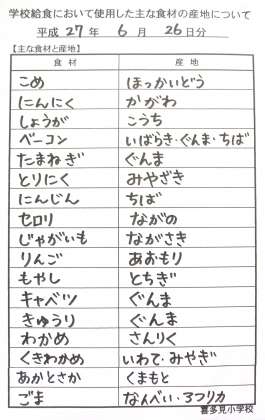 学校給食において使用した主な食材の産地について
平成 27年 6月 26日分
【主な食材と産地】
食材 産地
こめ ほっかいどう
にんにく かがわ
しょうが こうち
ベーコン いばらき・ぐんま・ちば
たまねぎ ぐんま
とりにく みやざき
にんじん ちば
セロリ ながの
じゃがいも ながさき
りんご あおもり
もやし とちぎ
キャベツ ぐんま
きゅうり ぐんま
わかめ さんりく
くきわかめ いわて・みやぎ
あかとさか くまもと
ごま なんべい・アフリカ
喜多見小学校